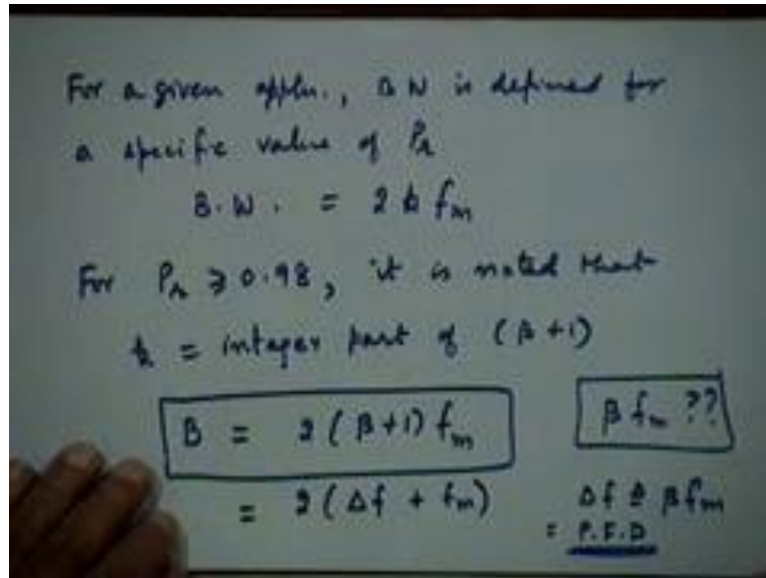 For a given appln., B W is defined for
a specific value of Pr
B.W. = 2 k fm
For Pr ⩾ 0.98, it is noted that
k = integer part of (β+1)
B = 2 (β+1) fm
β fm ??
= 2 (Δf + fm)
Δf ≜ β fm
= P.F.D